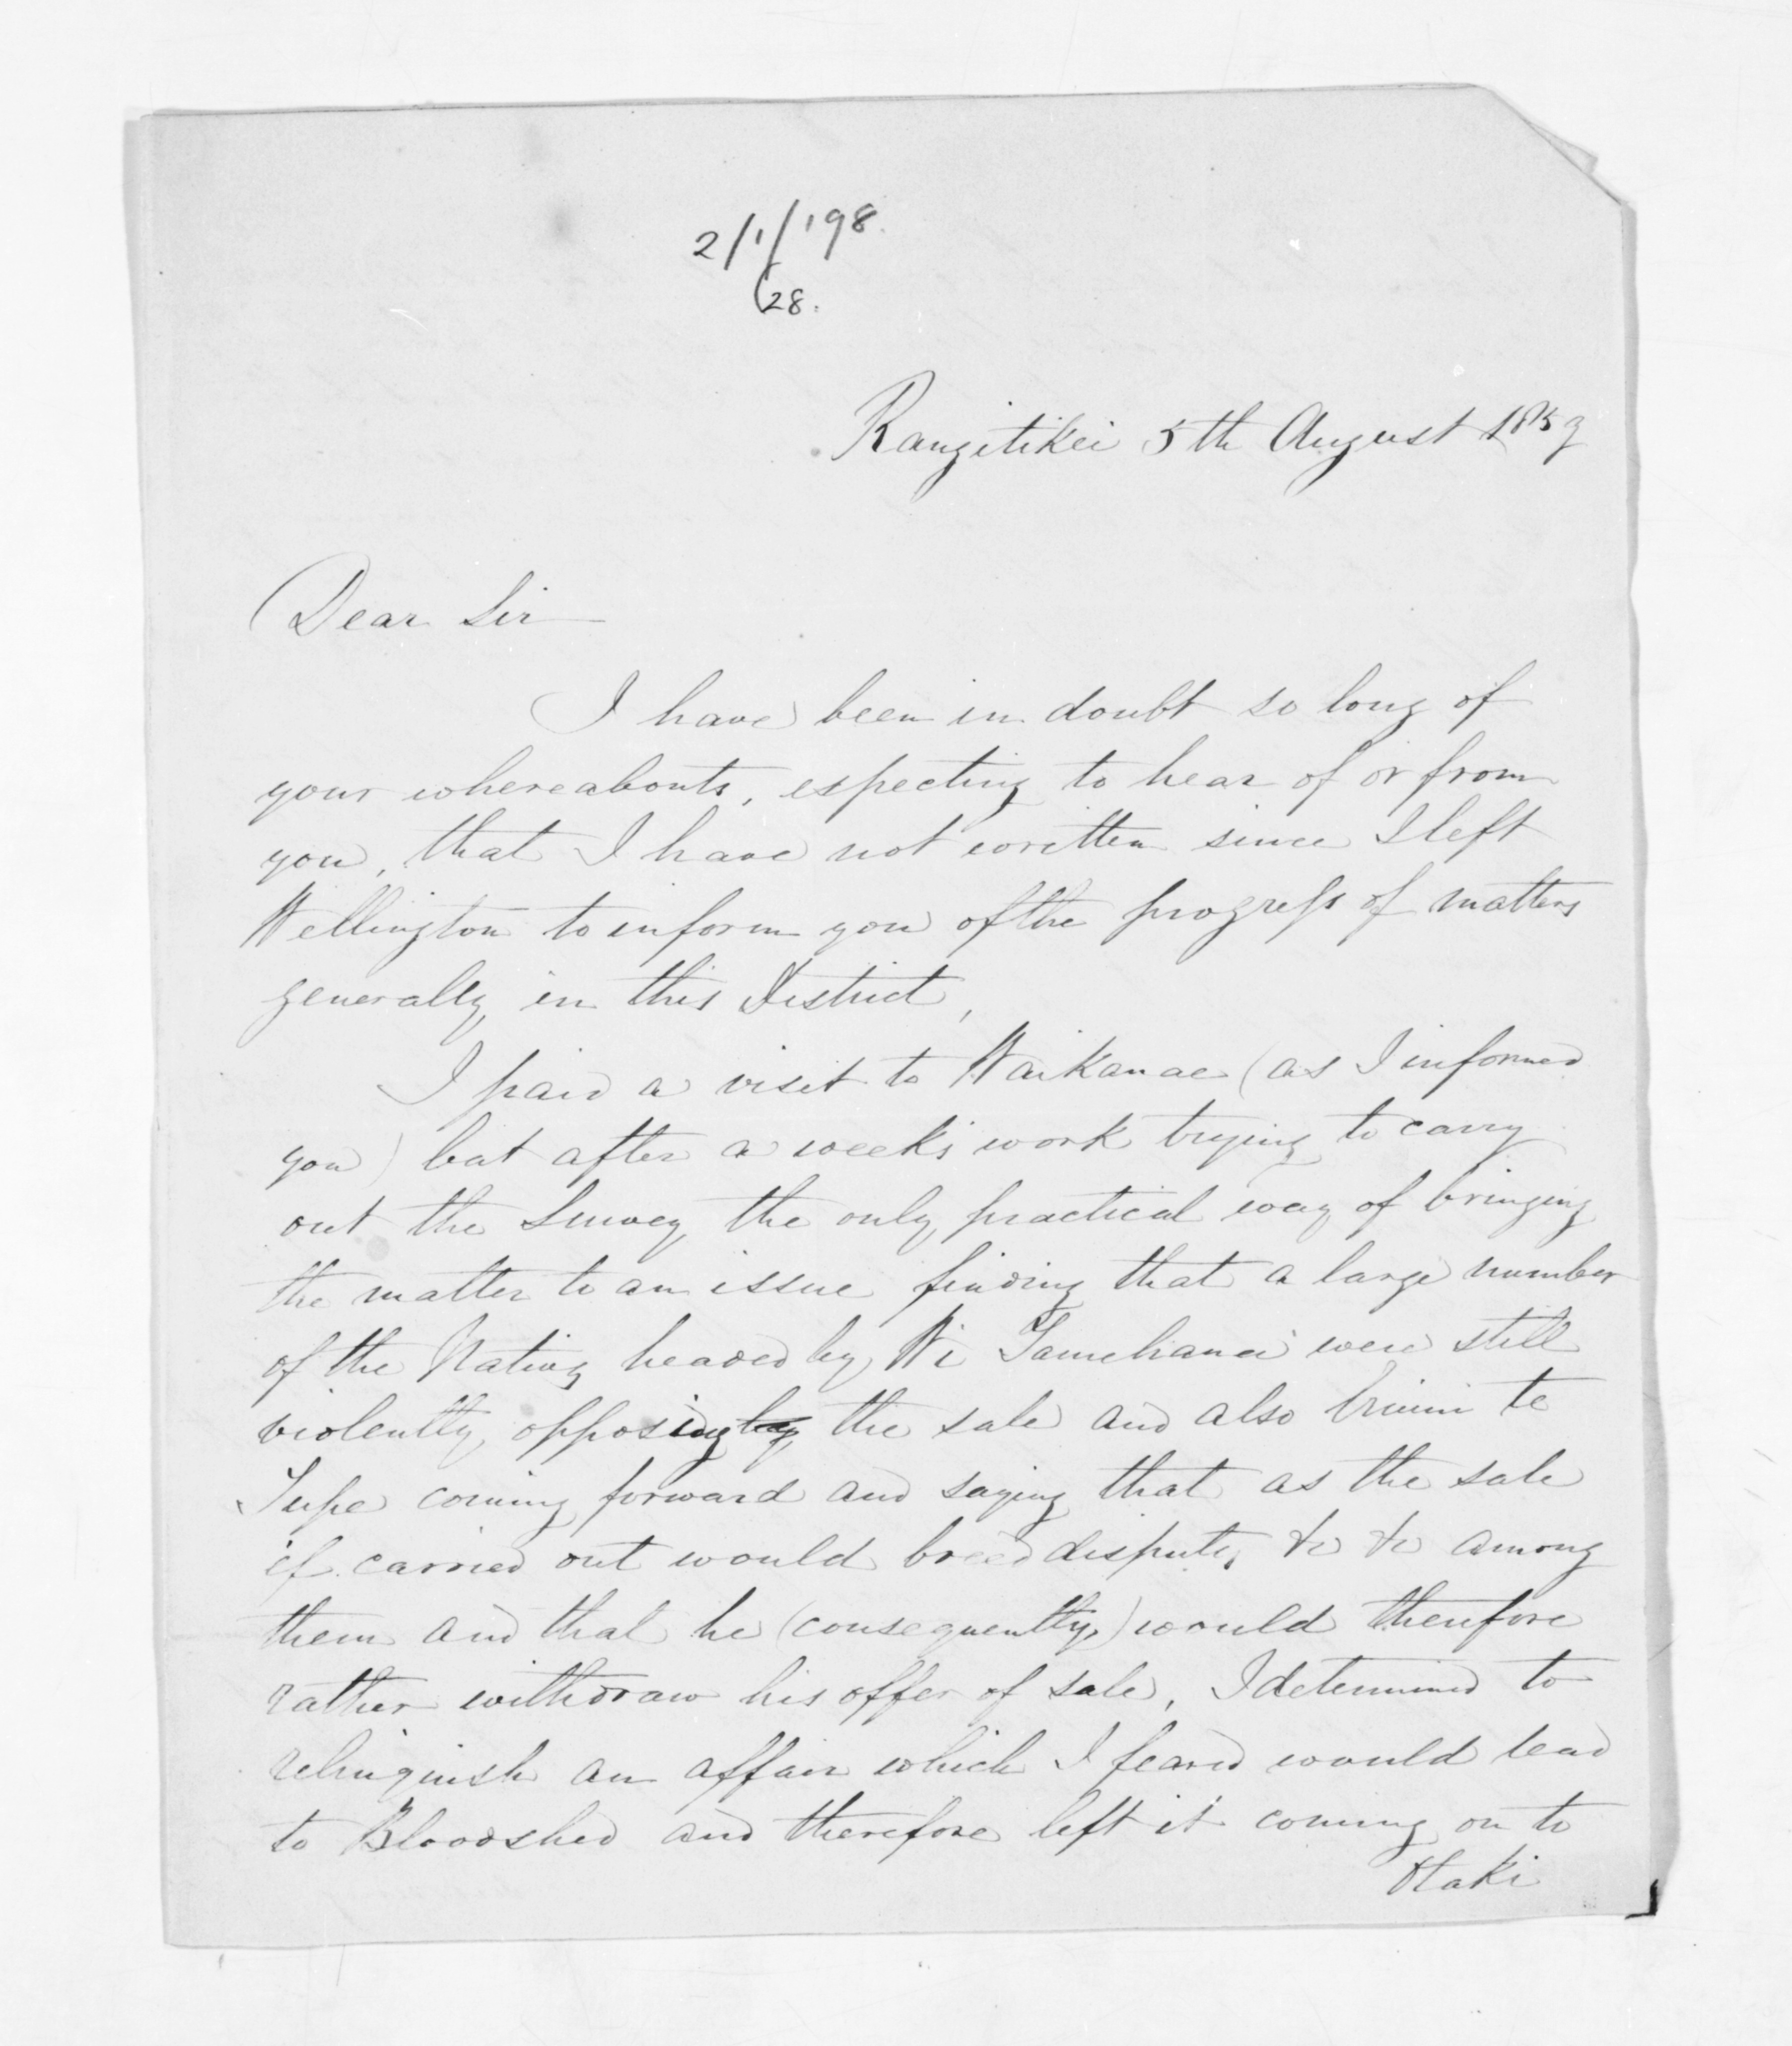 2/1/198.
28.
Rangitikei 5th August 1859
Dear Sir
I have been in doubt so long of
your whereabouts, expecting to hear of or from
you, that I have not written since I left
Wellington to inform you of the progress of matters
generally in this District,
I paid a visit to Waikanae (as I informed
you) but after a weeks work trying to carry
out the Survey the only practical way of bringing
the matter to an issue finding that a large number
of the Natives headed by Wi Tamehana were still
violently opposing by the sale and also te
Tupe coming forward and saying that as the sale
if carried out would breed disputes &c &c among
them and that he (consequently,) would therefore
rather withdraw his offer of sale, I determined to
relinquish an affair which I feared would lead
to Bloodshed and therefore left it coming on to
Otaki